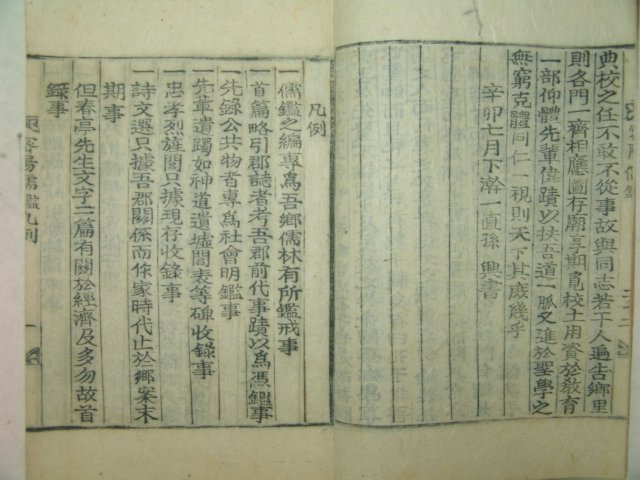 典校之任不敢不從事故與同志若干人遍告鄉里
則各門一齊相應圖存廟享期覓校土用資於敎育
一部仰體先輩偉蹟以扶吾道一脈又進於聖學之
無窮克體同仁一視則天下其庶幾乎
辛卯七月下澣一直孫 興書
凡例
一儒鑑之編專爲吾鄉儒林有所鑑戒事
首篇略引郡誌者考吾郡前代事蹟以爲憑鑑事
先錄公共物者專爲社會明鑑事
一先輩遺躅如神道遺墟閭表等碑收錄事
一忠孝烈旌閭只據現存收錄事
一詩文選只據吾郡關係而作家時代止於鄉案末
期事
但春亭先生文字二篇有關於經濟及多勿故首
錄事
密陽儒鑑凡例
一